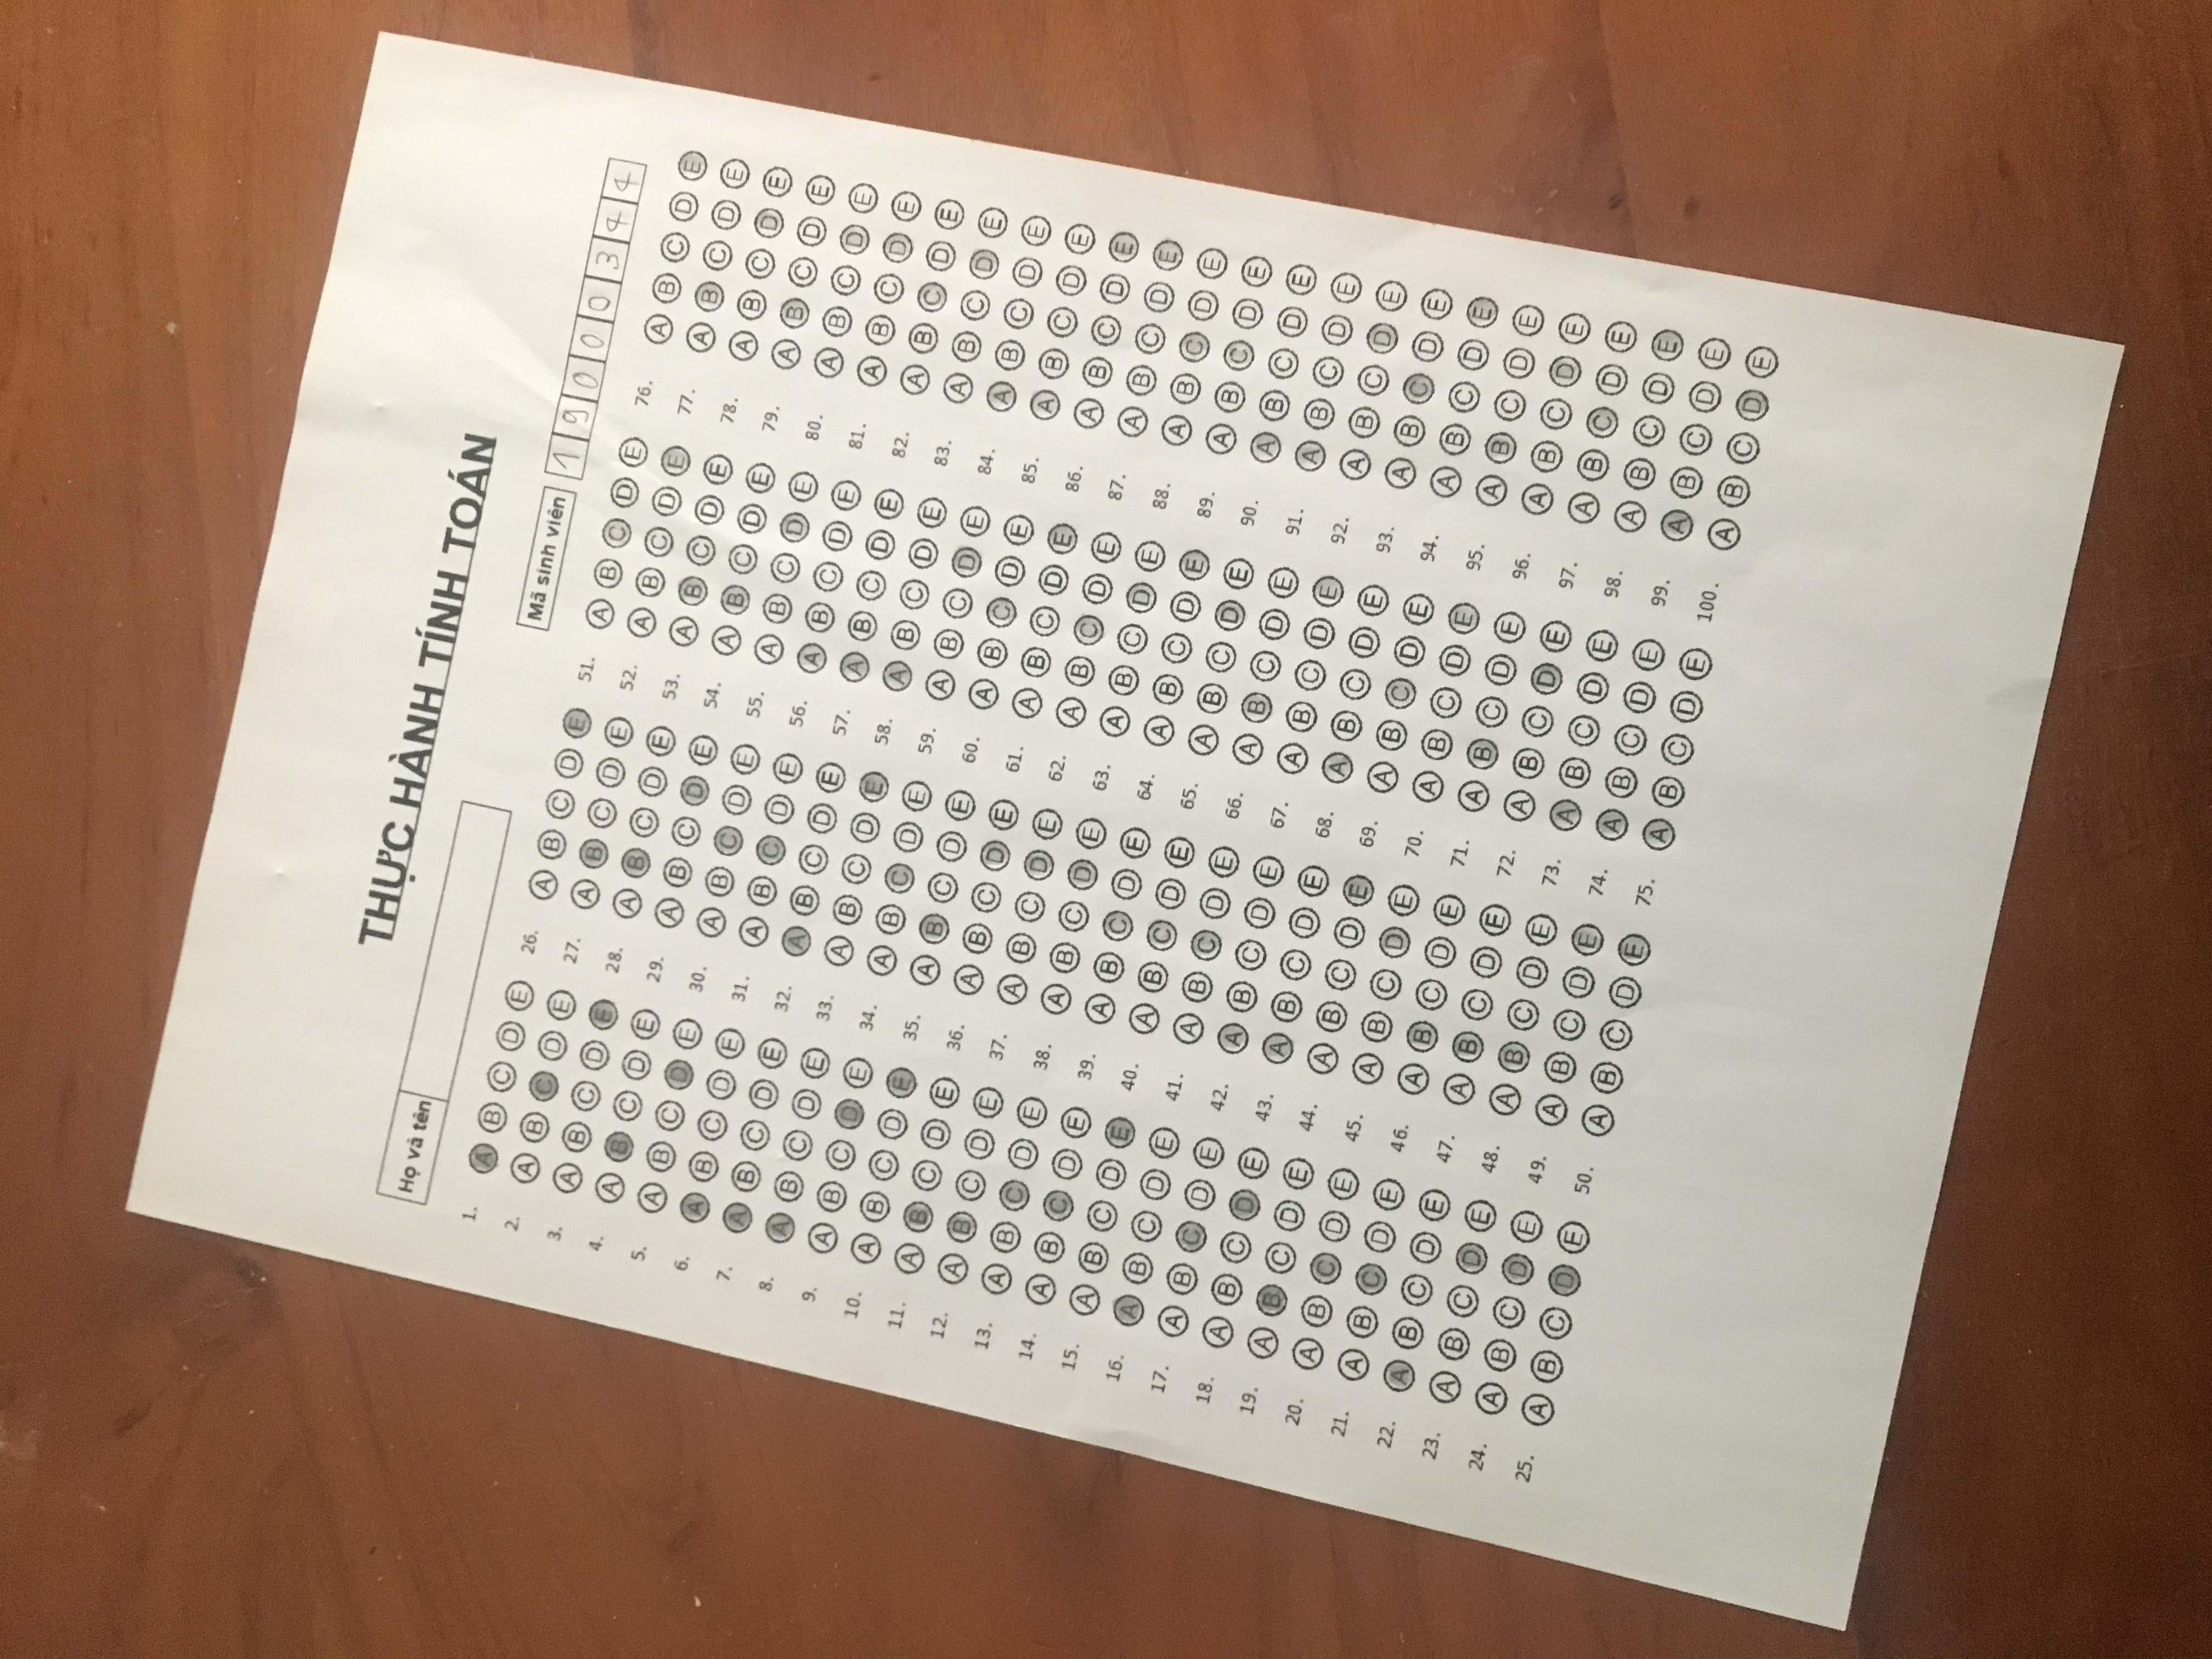 THỰC HÀNH TÍNH TOÁN
Họ và tên
Mã sinh viên 1 9 0 0 0 3 4 4
1. A B C D E
2. A B C D E
3. A B C D E
4. A B C D E
5. A B C D E
6. A B C D E
7. A B C D E
8. A B C D E
9. A B C D E
10. A B C D E
11. A B C D E
12. A B C D E
13. A B C D E
14. A B C D E
15. A B C D E
16. A B C D E
17. A B C D E
18. A B C D E
19. A B C D E
20. A B C D E
21. A B C D E
22. A B C D E
23. A B C D E
24. A B C D E
25. A B C D E
26. A B C D E
27. A B C D E
28. A B C D E
29. A B C D E
30. A B C D E
31. A B C D E
32. A B C D E
33. A B C D E
34. A B C D E
35. A B C D E
36. A B C D E
37. A B C D E
38. A B C D E
39. A B C D E
40. A B C D E
41. A B C D E
42. A B C D E
43. A B C D E
44. A B C D E
45. A B C D E
46. A B C D E
47. A B C D E
48. A B C D E
49. A B C D E
50. A B C D E
51. A B C D E
52. A B C D E
53. A B C D E
54. A B C D E
55. A B C D E
56. A B C D E
57. A B C D E
58. A B C D E
59. A B C D E
60. A B C D E
61. A B C D E
62. A B C D E
63. A B C D E
64. A B C D E
65. A B C D E
66. A B C D E
67. A B C D E
68. A B C D E
69. A B C D E
70. A B C D E
71. A B C D E
72. A B C D E
73. A B C D E
74. A B C D E
75. A B C D E
76. A B C D E
77. A B C D E
78. A B C D E
79. A B C D E
80. A B C D E
81. A B C D E
82. A B C D E
83. A B C D E
84. A B C D E
85. A B C D E
86. A B C D E
87. A B C D E
88. A B C D E
89. A B C D E
90. A B C D E
91. A B C D E
92. A B C D E
93. A B C D E
94. A B C D E
95. A B C D E
96. A B C D E
97. A B C D E
98. A B C D E
99. A B C D E
100. A B C D E